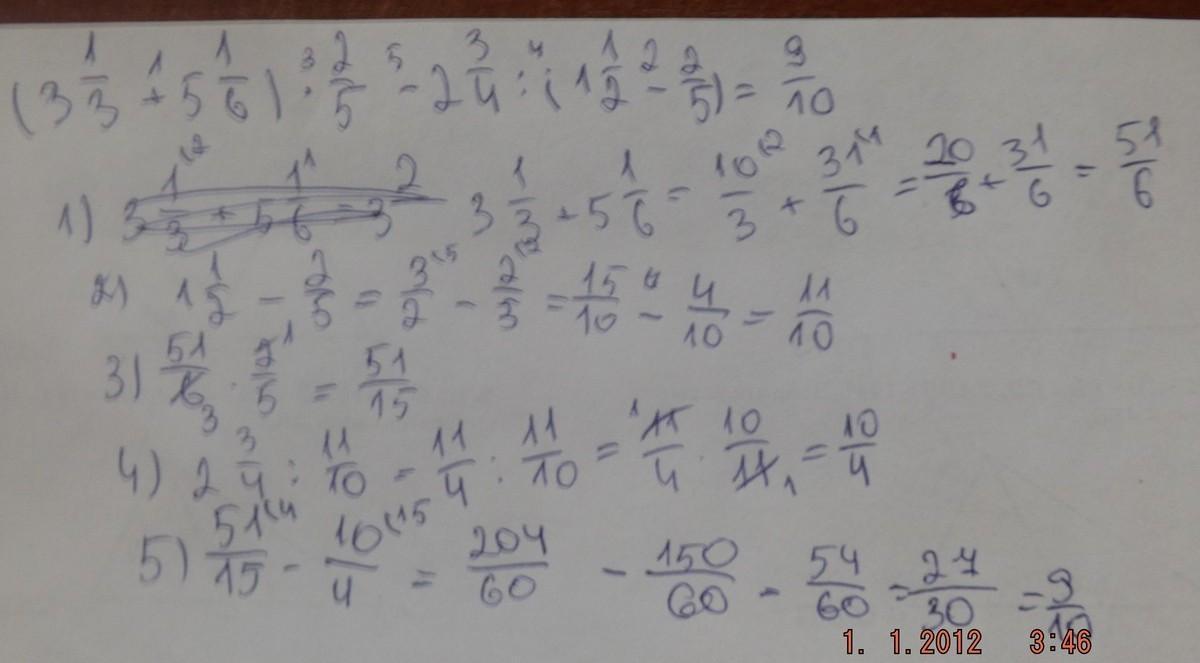 (3 1/3 + 5 1/6) · 2/5 - 2 3/4 : (1 1/2 - 2/5) = 9/10
1) 3 1/3 + 5 1/6 = 10/3 + 31/6 = 20/6 + 31/6 = 51/6
2) 1 1/2 - 2/5 = 3/2 - 2/5 = 15/10 - 4/10 = 11/10
3) 51/6 · 2/5 = 51/15
4) 2 3/4 : 11/10 = 11/4 : 11/10 = 11/4 · 10/11 = 10/4
5) 51/15 - 10/4 = 204/60 - 150/60 = 54/60 = 27/30 = 9/10
1. 1.2012 3:46